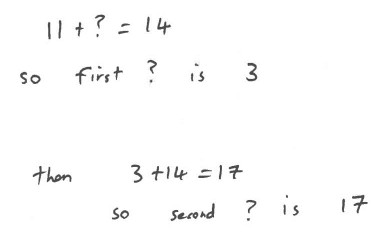 11 + ? = 14
so first ? is 3
then 3 + 14 = 17
so second ? is 17